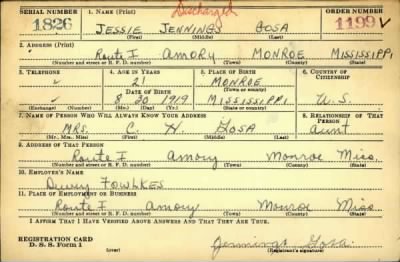 SERIAL NUMBER 1. NAME (Print) Discharged ORDER NUMBER
1826 JESSIE JENNINGS GOSA 1199 V
(First) (Middle) (Last)
2. ADDRESS (Print)
Route I AMORY MONROE MISSISSIPPI
(Number and street or R. F. D. number) (Town) (County) (State)
3. TELEPHONE 4. AGE IN YEARS 5. PLACE OF BIRTH 6. COUNTRY OF
CITIZENSHIP
21 MONROE
DATE OF BIRTH (Town or county)
8 20 1919 MISSISSIPPI U.S.
(Exchange) (Number) (Mo.) (Day) (Yr.) (State or country)
7. NAME OF PERSON WHO WILL ALWAYS KNOW YOUR ADDRESS 8. RELATIONSHIP OF THAT
PERSON
MRS. C. H. GOSA aunt
(Mr., Mrs., Miss) (First) (Middle) (Last)
9. ADDRESS OF THAT PERSON
Route I Amory Monroe Miss.
(Number and street or R. F. D. number) (Town) (County) (State)
10. EMPLOYER'S NAME
FOWLKES
11. PLACE OF EMPLOYMENT OR BUSINESS
Route I Amory Monroe Miss.
(Number and street or R. F. D. number) (Town) (County) (State)
I AFFIRM THAT I HAVE VERIFIED ABOVE ANSWERS AND THAT THEY ARE TRUE.
REGISTRATION CARD
D. S. S. Form 1 (over) Jennings Gosa
(Registrant's signature)